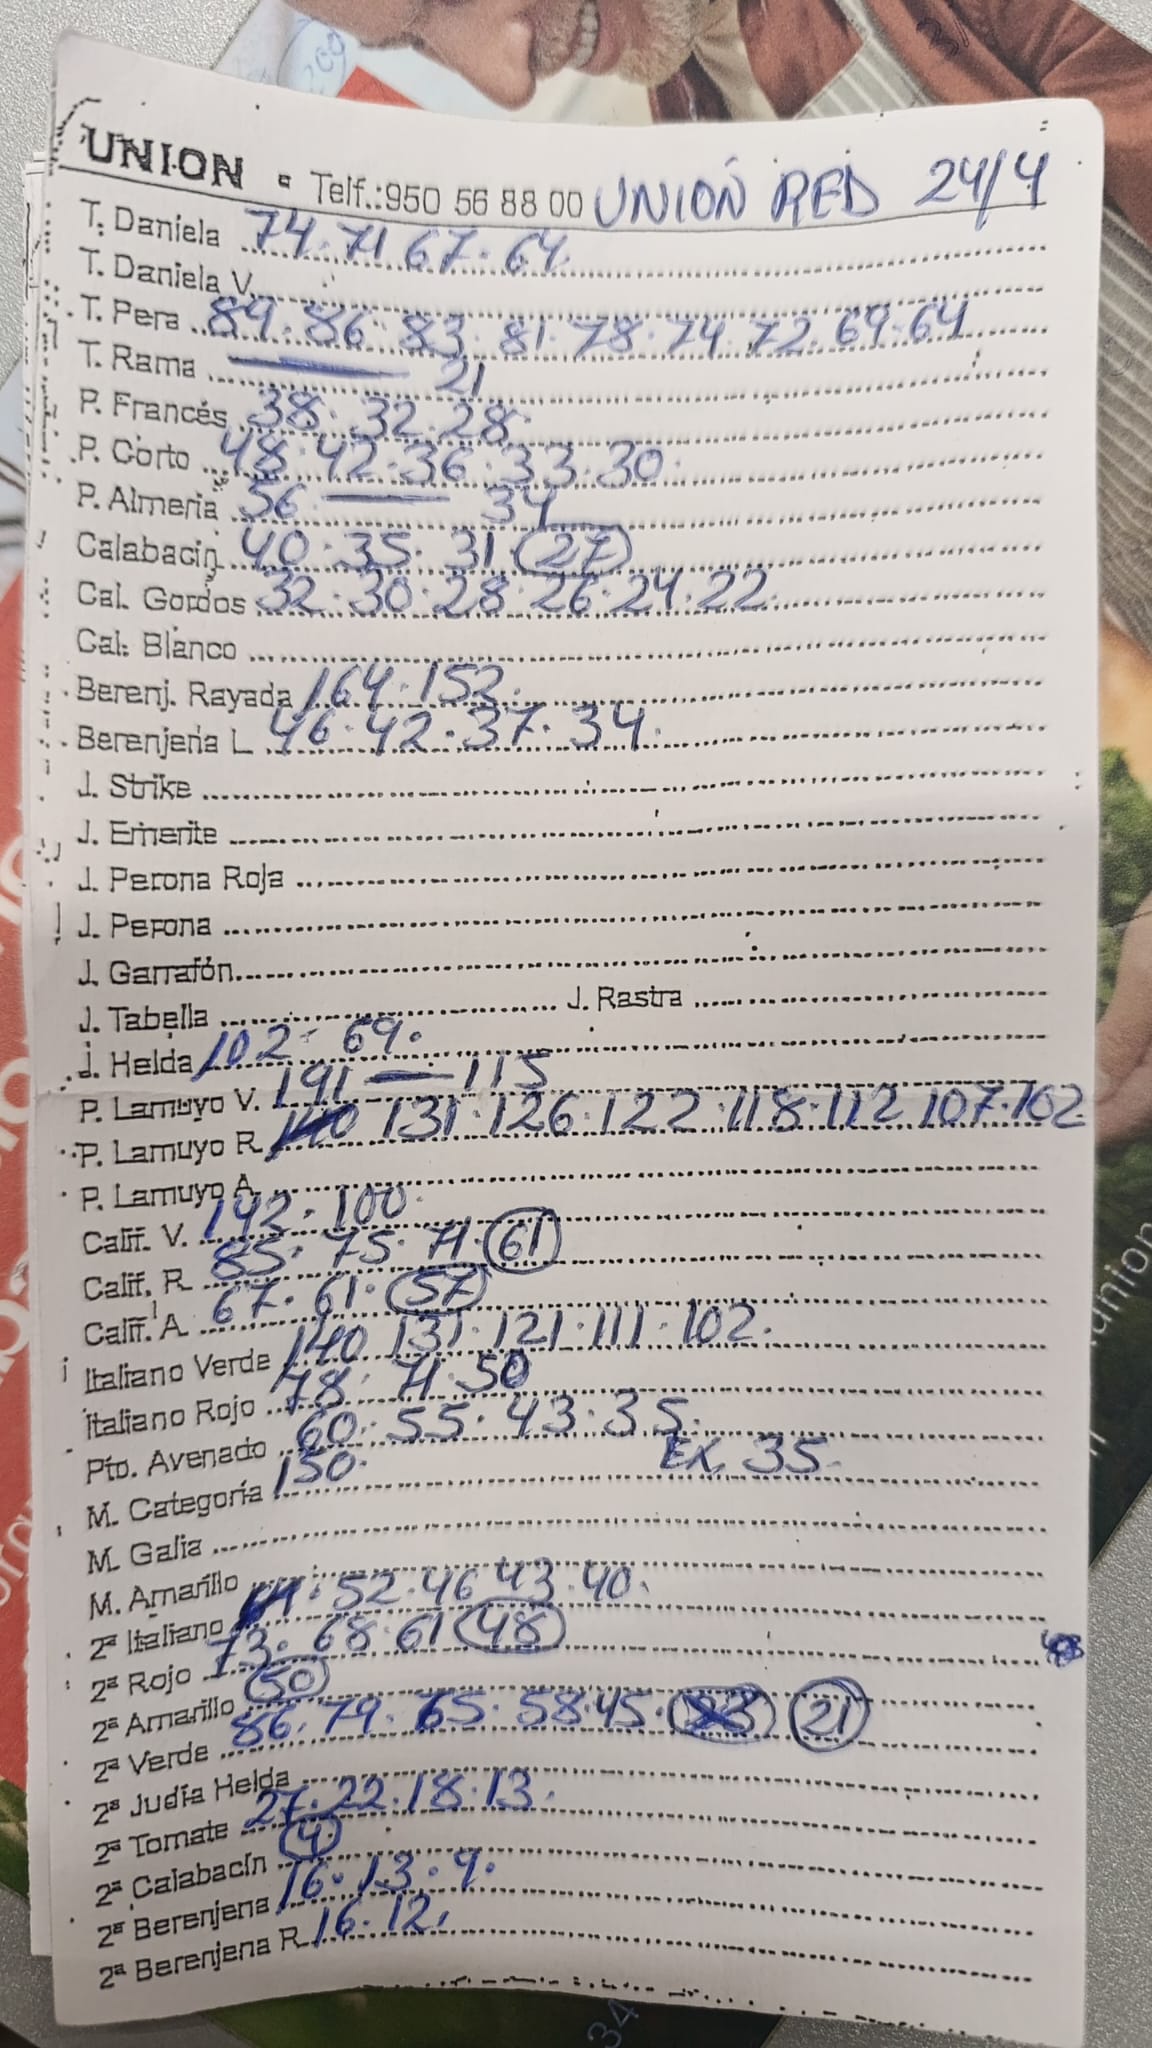 UNION - Telf.:950 56 88 00 UNIÓN RED 24/4
T. Daniela 74. 71 67. 64.
T. Daniela V.
T. Pera 89. 86. 83. 81. 78. 74. 72. 69. 64
T. Rama —— 21
P. Francés 38. 32. 28.
P. Corto 48. 42. 36. 33. 30.
P. Almeria 56. —— 34
Calabacin 40. 35. 31. 27
Cal. Gordos 32. 30. 28. 26. 24. 22.
Cal. Blanco
Berenj. Rayada 164. 152.
Berenjena L. 46. 42. 37. 34.
J. Strike
J. Emerite
J. Perona Roja
J. Perona
J. Garrafón
J. Tabella J. Rastra
J. Helda 102. 69.
P. Lamuyo V. 191 — 115
P. Lamuyo R. 140 131. 126. 122. 118. 112 107. 102.
P. Lamuyo A.
Calif. V. 142. 100.
Calif. R. 85. 75. 71. 61
Calif. A. 67. 61. 57
Italiano Verde 140 131. 121. 111. 102.
Italiano Rojo 78. 71. 50
Pto. Avenado 60. 55. 43. 35.
M. Categoría 150. EX. 35.
M. Galia
M. Amarillo
2ª Italiano 52. 46 43. 40.
2ª Rojo 73. 68. 61 48
2ª Amarillo 50
2ª Verde 86. 79. 65. 58. 45. 21
2ª Judía Helda
2ª Tomate 27. 22. 18. 13.
2ª Calabacín 4
2ª Berenjena 16. 13. 9.
2ª Berenjena R. 16. 12.